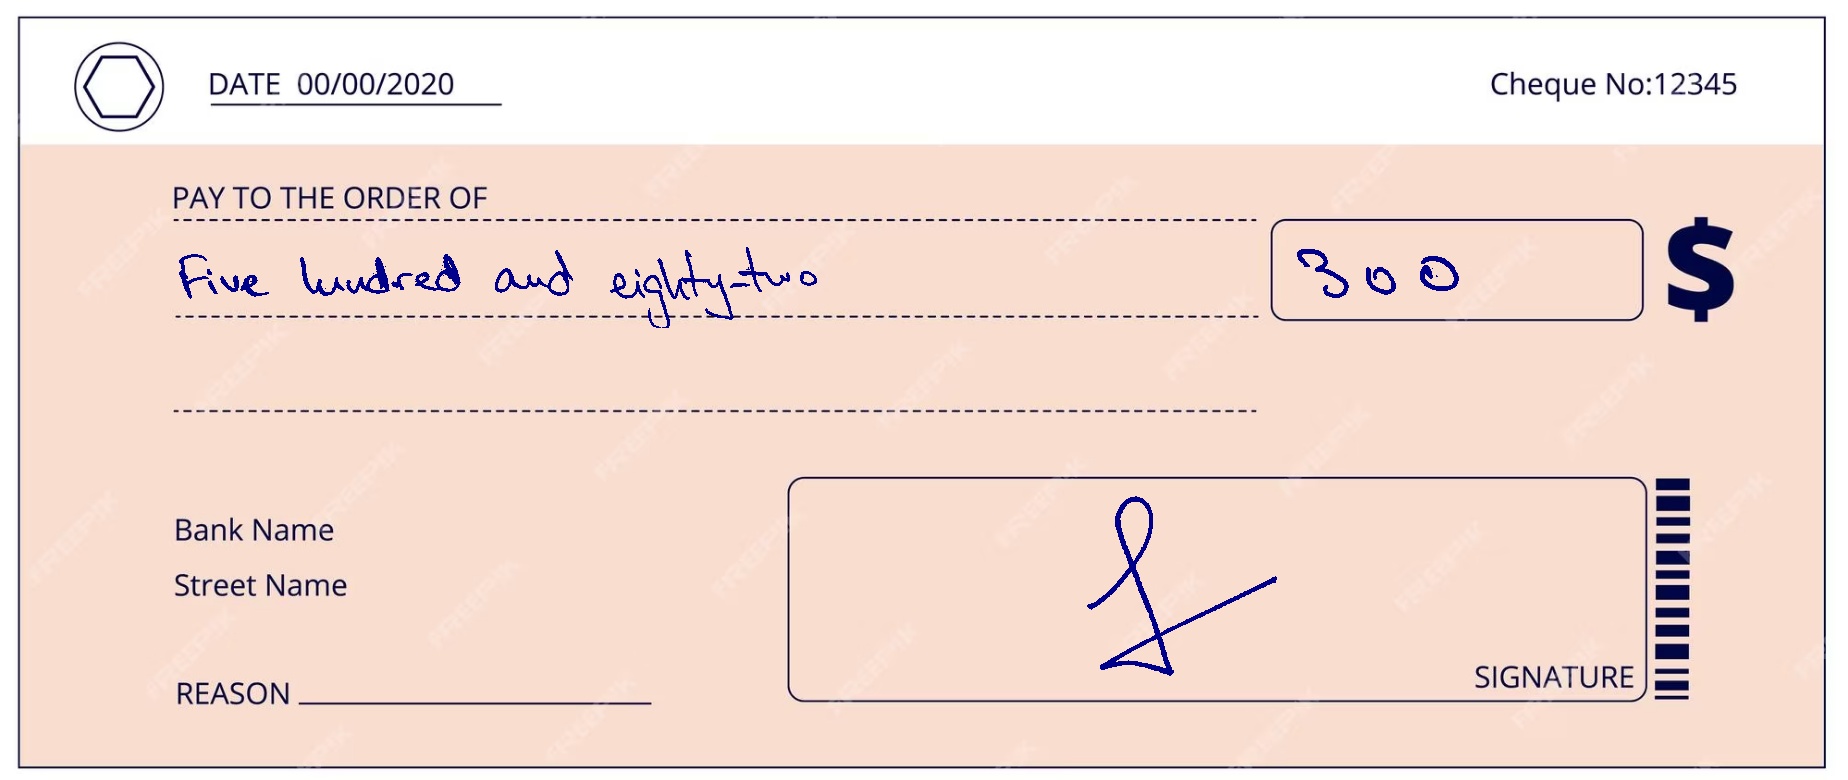 DATE 00/00/2020
Cheque No:12345
PAY TO THE ORDER OF
Five hundred and eighty-two
300
$
Bank Name
Street Name
REASON
SIGNATURE